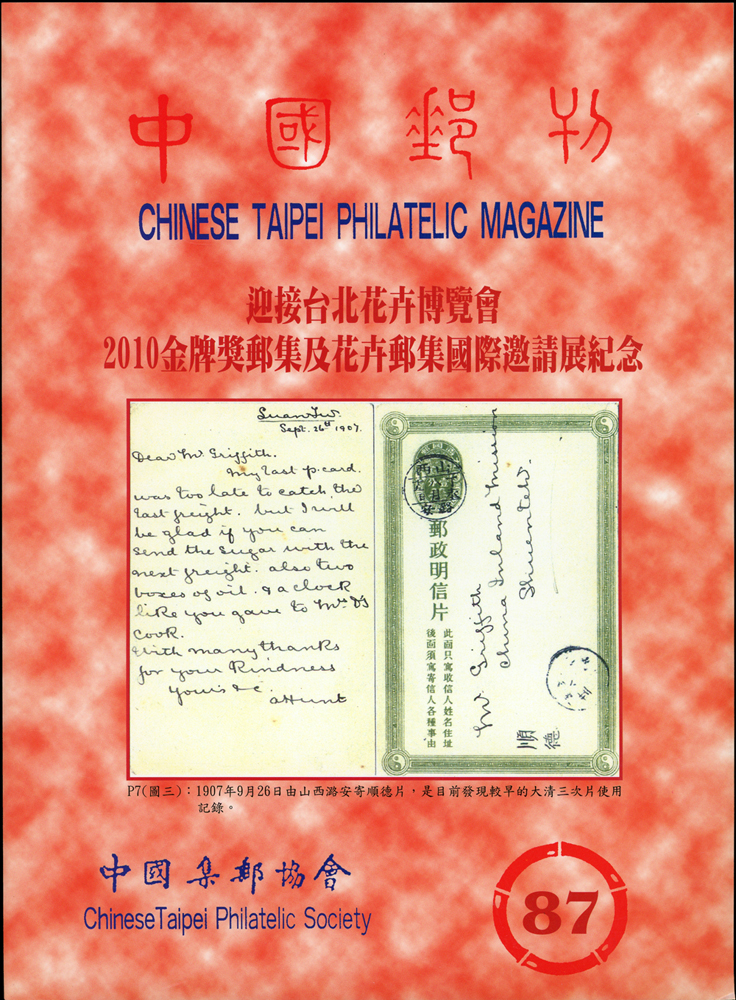 中國郵刊
CHINESE TAIPEI PHILATELIC MAGAZINE
迎接台北花卉博覽會
2010金牌獎郵集及花卉郵集國際邀請展紀念
Sept. 26th 1907.
Dear Mr Griffith.
My last p.card.
was too late to catch the
last freight. but I will
be glad if you can
send the sugar with the
next freight. also two
boxes of oil. & a clock
like you gave to Mrs
Cook.
With many thanks
for your kindness
Yours &c.
A Hunt
山西
潞安
郵政明信片
此面只寫收信人姓名住址
後面須寫寄信人各種事由
Mr. Griffith
China Inland Mission
Shuenteh.
順德
P7(圖三)：1907年9月26日由山西潞安寄順德片，是目前發現較早的大清三次片使用
記錄。
中國集郵協會
ChineseTaipei Philatelic Society
87